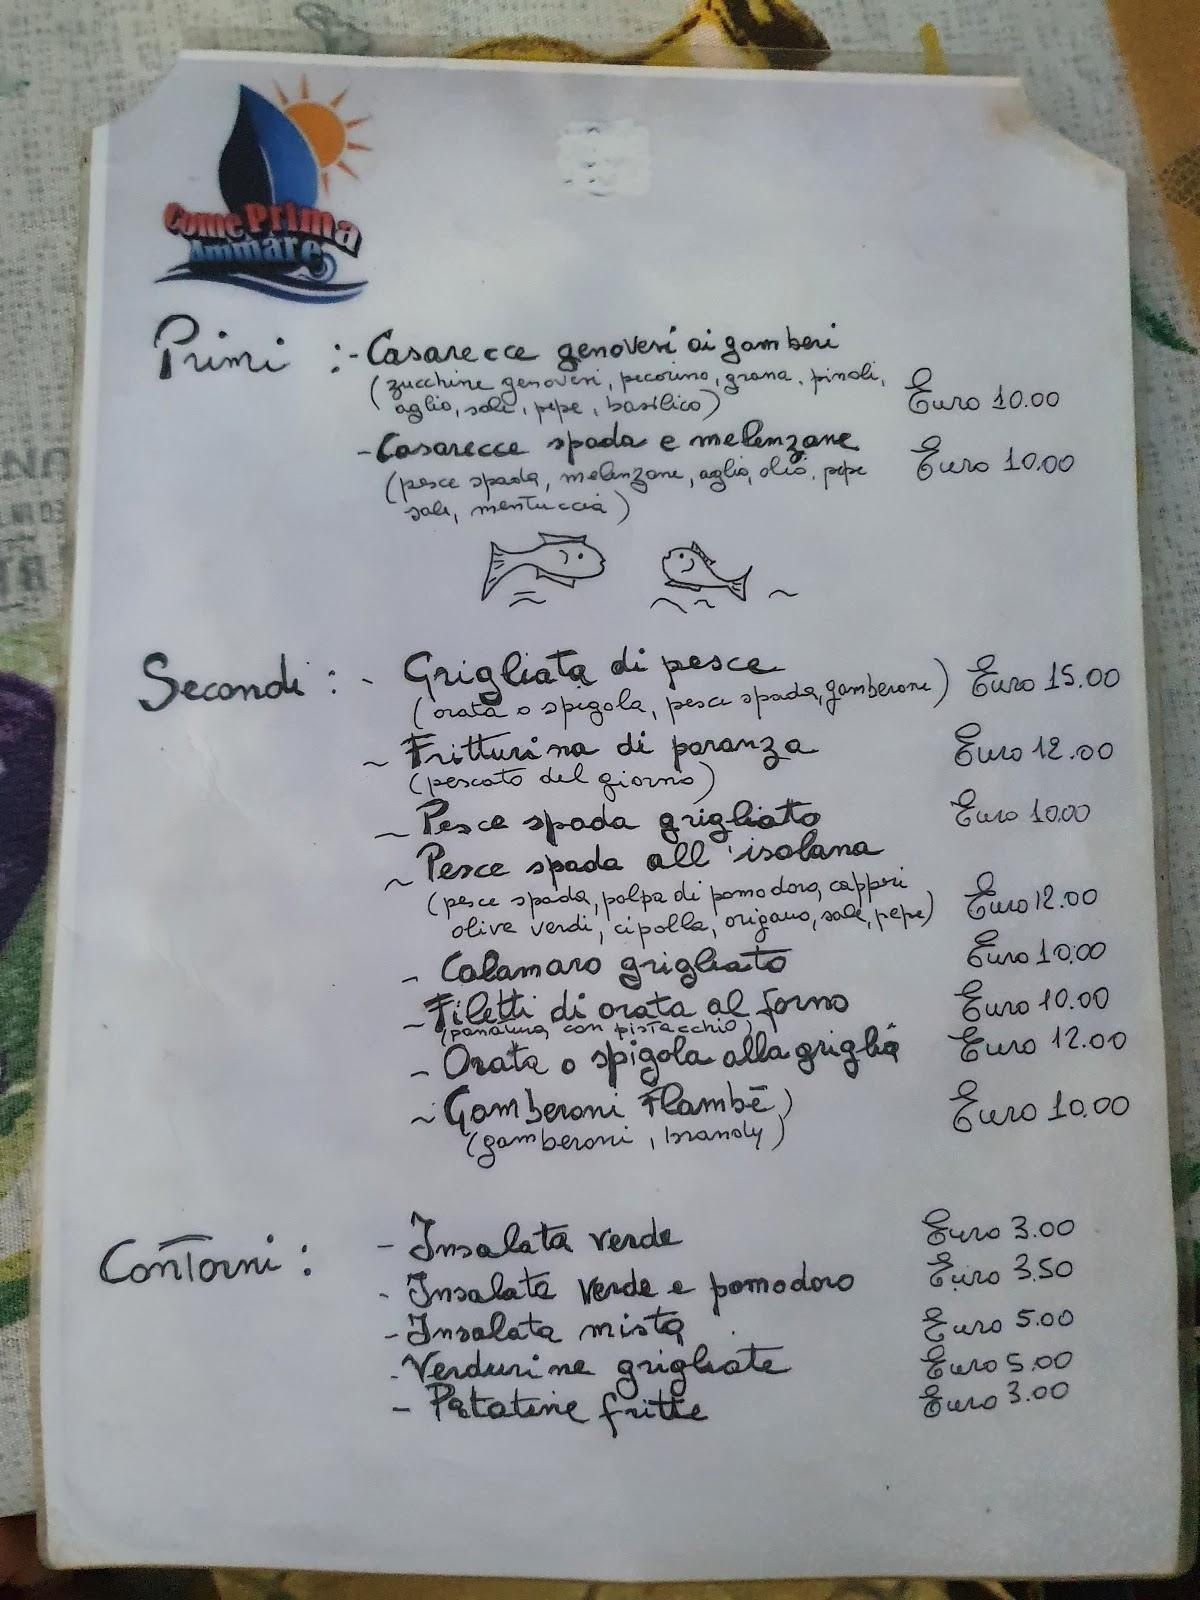 Come Prima
Ammare
Primi :- Casarecce genovesi ai gamberi
(zucchine genovesi, pecorino, grana, pinoli,
aglio, sale, pepe, basilico) Euro 10.00
- Casarecce spada e melenzane Euro 10.00
(pesce spada, melenzane, aglio, olio, pepe
sale, mentuccia)
Secondi : - Grigliata di pesce
(orata o spigola, pesce spada, gamberoni) Euro 15.00
~ Fritturina di paranza Euro 12.00
(pescato del giorno)
~ Pesce spada grigliato Euro 10.00
~ Pesce spada all'isolana
(pesce spada, polpa di pomodoro, capperi
olive verdi, cipolla, origano, sale, pepe) Euro 12.00
- Calamaro grigliato Euro 10.00
- Filetti di orata al forno Euro 10.00
(panatura con pistacchio)
- Orata o spigola alla griglia Euro 12.00
~ Gamberoni Flambē Euro 10.00
(gamberoni, brandy)
Contorni : - Insalata verde Euro 3.00
- Insalata verde e pomodoro Euro 3.50
- Insalata mista Euro 5.00
- Verdurine grigliate Euro 5.00
- Patatine fritte Euro 3.00